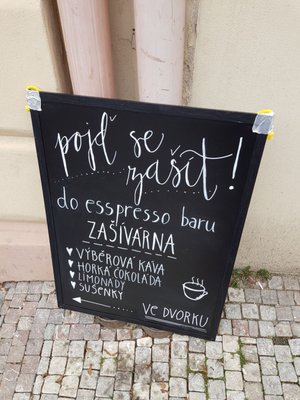 pojď se
zašít!
do esspresso baru
ZAŠÍVÁRNA
VÝBĚROVÁ KÁVA
HORKÁ ČOKOLÁDA
LIMONÁDY
SUŠENKY
VE DVORKU